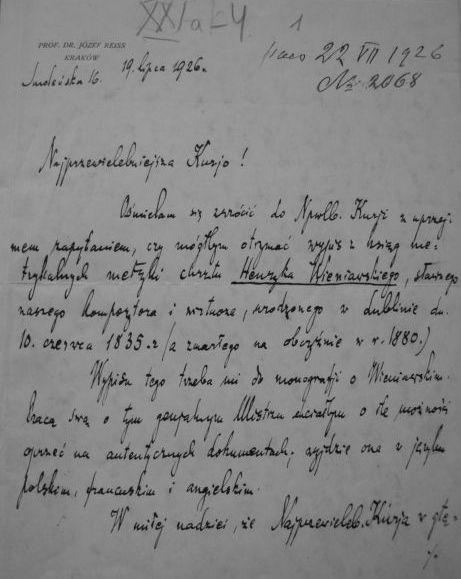 XXI a-4 1
PROF. DR. JÓZEF REISS
KRAKÓW
Smoleńska 16. 19. lipca 1926.
22 VII 1926
Nr. 2068
Najprzewielebniejsza Kurjo!
Ośmielam się zwrócić do Npwlb. Kurji z uprzej-
mem zapytaniem, czy mógłbym otrzymać wypis z ksiąg me-
trykalnych metryki chrztu Henryka Wieniawskiego, sławnego
naszego kompozytora i wirtuoza, urodzonego w Lublinie dn.
10. czerwca 1835. r (a zmarłego na obczyźnie w r. 1880.)
Wypisu tego trzeba mi do monografji o Wieniawskim.
Pracę swą o tym genjalnym Mistrzu chciałbym o ile możności
oprzeć na autentycznych dokumentach; wyjdzie ona w języku
polskim, francuskim i angielskim.
W miłej nadziei, że Najprzewieleb. Kurja w głę-